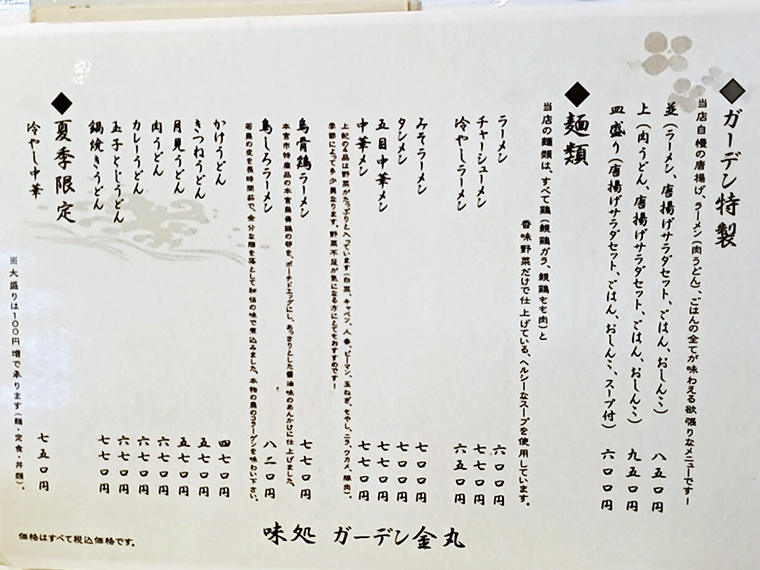 ◆ガーデン特製
当店自慢の唐揚げ、ラーメン(肉うどん)、ごはんの全てが味わえる欲張りなメニューです！
並(ラーメン、唐揚げサラダセット、ごはん、おしんこ) 八五〇円
上(肉うどん、唐揚げサラダセット、ごはん、おしんこ) 九五〇円
皿盛り(唐揚げサラダセット、ごはん、おしんこ、スープ付) 六〇〇円
◆麺類
当店の麺類は、すべて鶏(親鶏ガラ、親鶏もも肉)と
香味野菜だけで仕上げている、ヘルシーなスープを使用しています。
ラーメン 六〇〇円
チャーシューメン 七七〇円
冷やしラーメン 六五〇円
みそラーメン 七〇〇円
タンメン 七〇〇円
五目中華メン 七七〇円
中華メン 七七〇円
上記の4品は野菜がたっぷりと入っています(白菜、キャベツ、人参、ピーマン、玉ねぎ、もやし、ニラ、ワカメ、豚肉)。
季節によって多少異なります。野菜不足が気になる方にとてもおすすめです！
烏骨鶏ラーメン 七七〇円
本宮市特産品の本宮烏骨鶏の卵を、ポーチドエッグにし、あっさりとした醤油味のあんかけに仕上げました。
鳥しろラーメン 八二〇円
若鳥の皮を長時間茹で、余分な脂を落として秘伝の味で煮込みました。本物の鳥のコラーゲンを味わい下さい。
かけうどん 四七〇円
きつねうどん 五七〇円
月見うどん 五七〇円
肉うどん 六七〇円
カレーうどん 六七〇円
玉子とじうどん 六七〇円
鍋焼きうどん 七七〇円
◆夏季限定
冷やし中華 七五〇円
※大盛りは100円増で承ります(麺・定食・丼類)。
価格はすべて税込価格です。
味処 ガーデン金丸